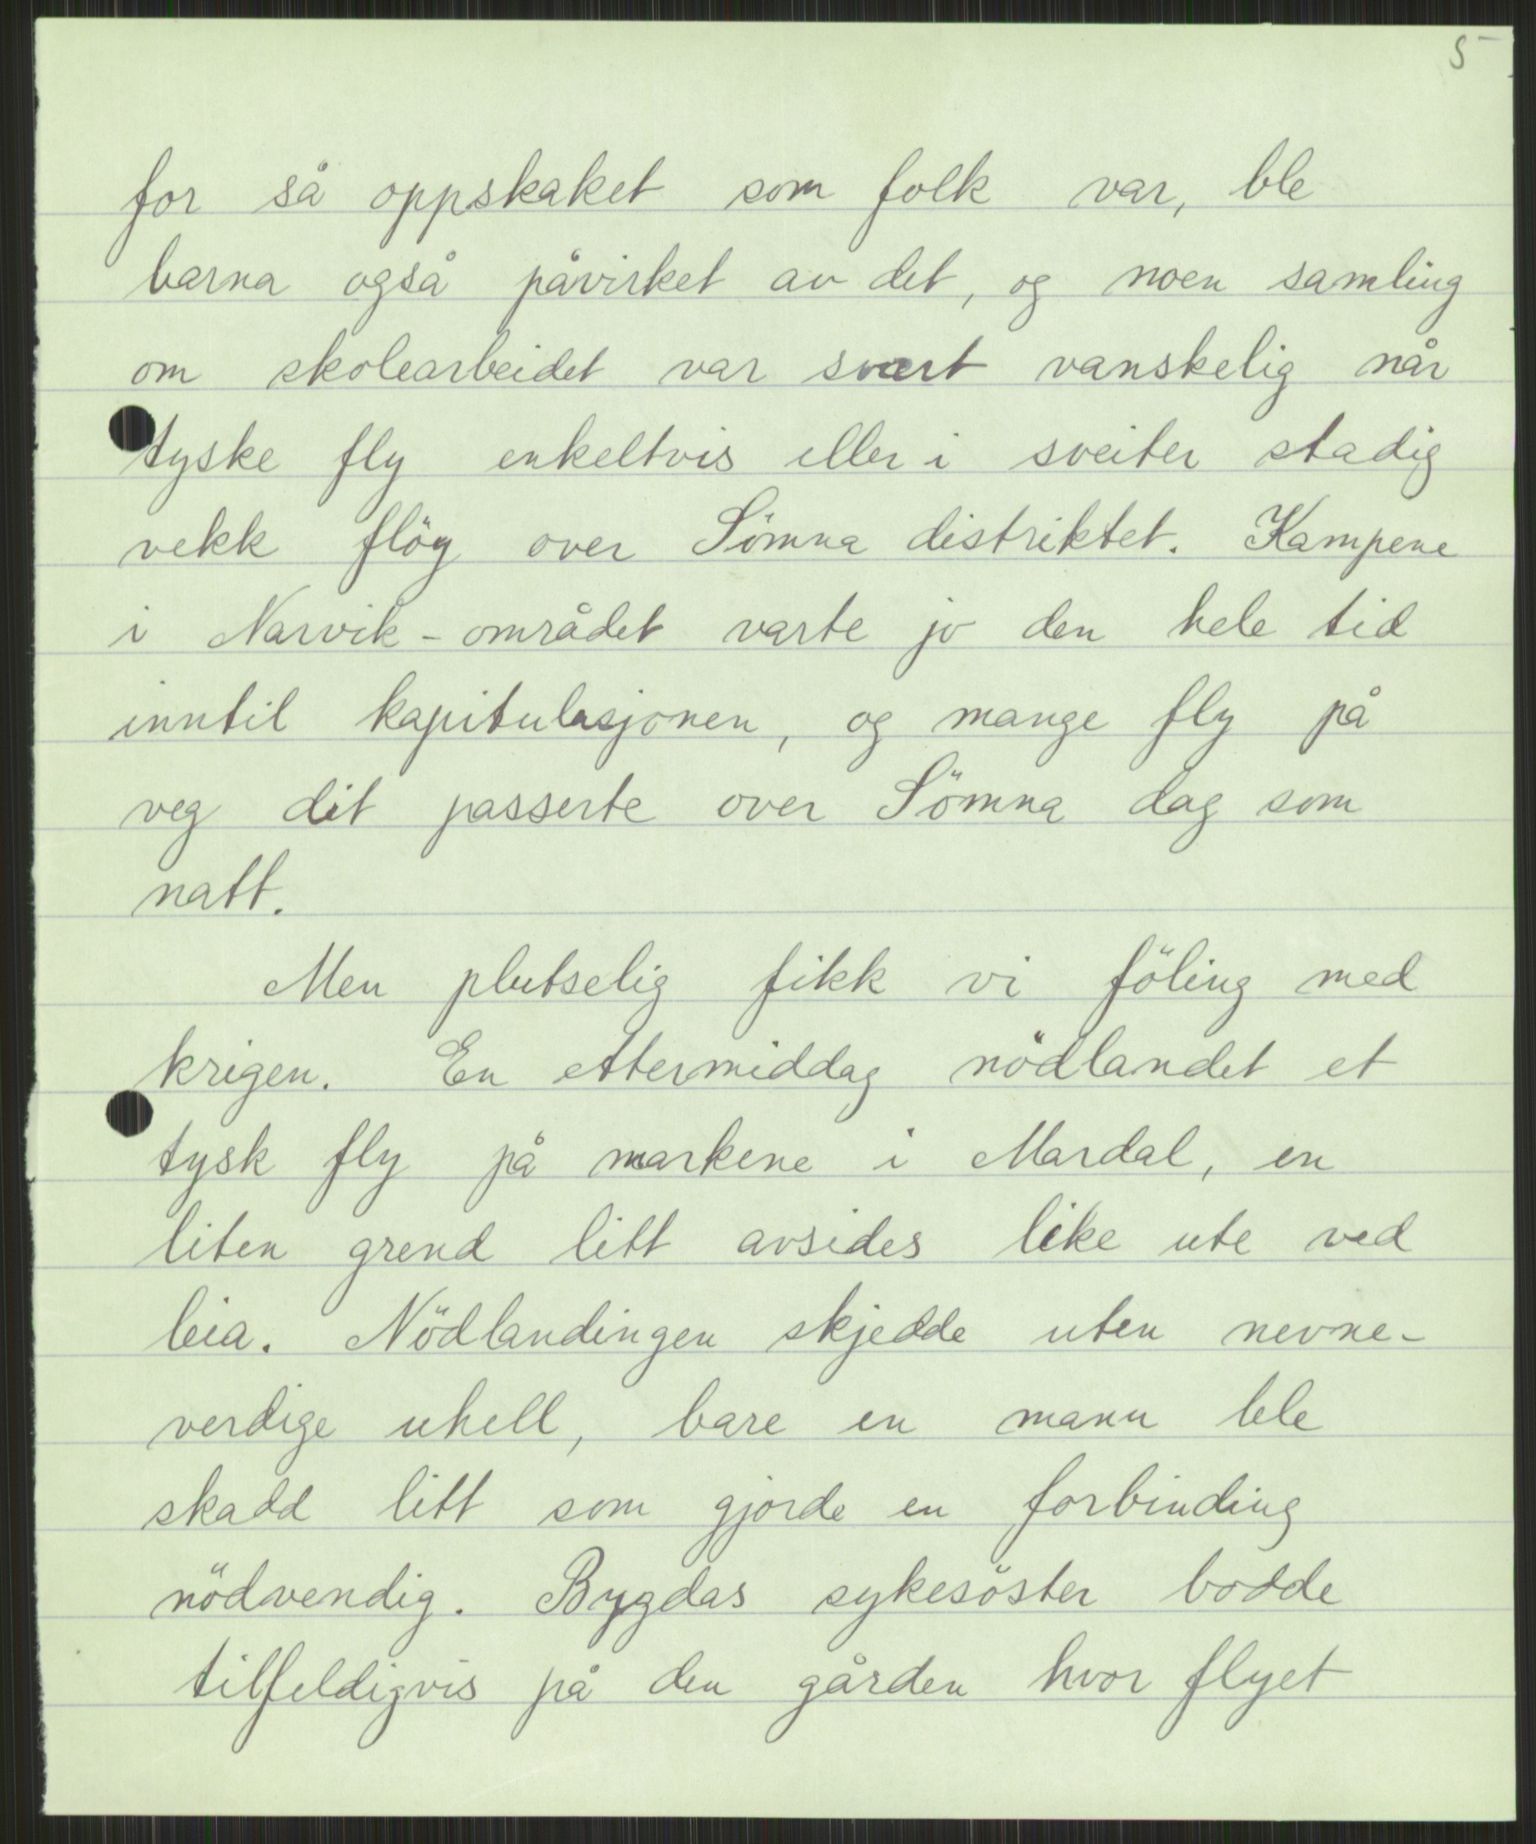 5
for så oppskaket som folk var, ble
barna også påvirket av det, og noen samling
om skolearbeidet var svært vanskelig når
tyske fly enkeltvis eller i sveiter stadig
vekk flög over Sömna distriktet. Kampene
i Narvik-området varte jo den hele tid
inntil kapitulasjonen, og mange fly på
veg dit passerte over Sömna dag som
natt.
Men plutselig fikk vi föling med
krigen. En ettermiddag nödlandet et
tysk fly på markene i Mardal, en
liten grend litt avsides like ute ved
leia. Nödlandingen skjedde uten nevne-
verdige uhell, bare en mann ble
skadd litt som gjorde en forbinding
nödvendig. Bygdas sykesöster bodde
tilfeldigvis på den gården hvor flyet